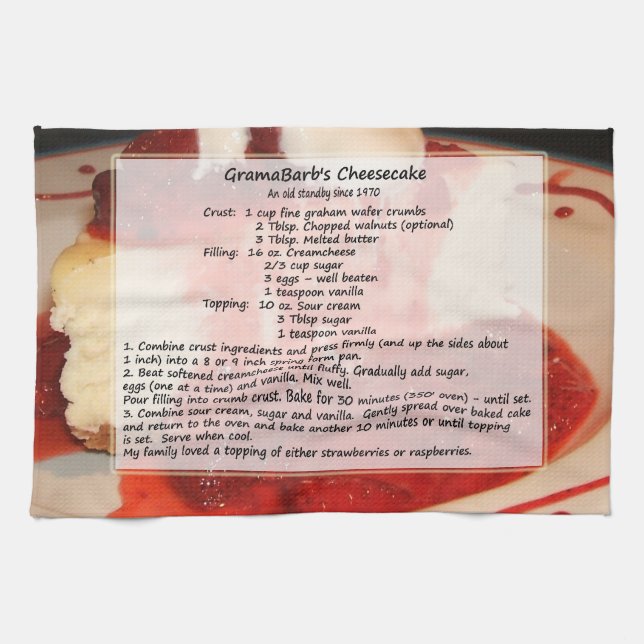 GramaBarb's Cheesecake
An old standby since 1970
Crust: 1 cup fine graham wafer crumbs
2 Tblsp. Chopped walnuts (optional)
3 Tblsp. Melted butter
Filling: 16 oz. Creamcheese
2/3 cup sugar
3 eggs – well beaten
1 teaspoon vanilla
Topping: 10 oz Sour cream
3 Tblsp sugar
1 teaspoon vanilla
1. Combine crust ingredients and press firmly (and up the sides about
1 inch) into a 8 or 9 inch spring form pan.
2. Beat softened creamcheese until fluffy. Gradually add sugar,
eggs (one at a time) and vanilla. Mix well.
Pour filling into crumb crust. Bake for 30 minutes (350' oven) – until set.
3. Combine sour cream, sugar and vanilla. Gently spread over baked cake
and return to the oven and bake another 10 minutes or until topping
is set. Serve when cool.
My family loved a topping of either strawberries or raspberries.